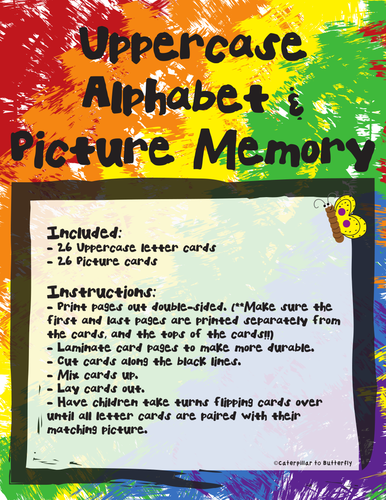 Uppercase
Alphabet &
Picture Memory
Included:
- 26 Uppercase letter cards
- 26 Picture cards
Instructions:
- Print pages out double-sided. (**Make sure the
first and last pages are printed separately from
the cards, and the tops of the cards!!)
- Laminate card pages to make more durable.
- Cut cards along the black lines.
- Mix cards up.
- Lay cards out.
- Have children take turns flipping cards over
until all letter cards are paired with their
matching picture.
©Caterpillar to Butterfly